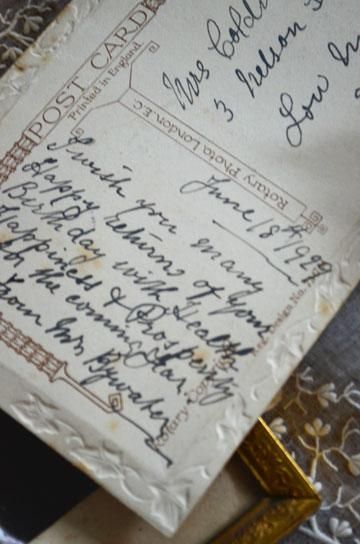 POST CARD
Printed in England
Rotary Photo, London. E.C.
Mrs
3 Nelson
Low
June 18th 1929
I wish you many
Happy returns of your
Birthday with Health
Happiness & Prosperity
in the coming Year
from Mrs Bywater
Rotary
Design No.